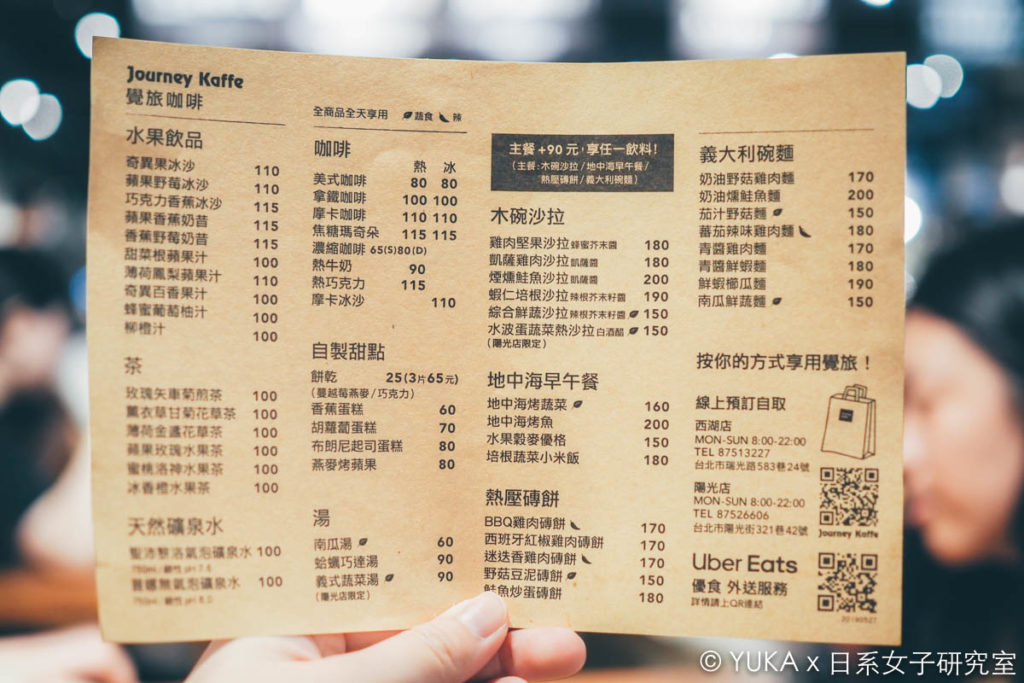 Journey Kaffe
覺旅咖啡
水果飲品
奇異果冰沙 110
蘋果野莓冰沙 110
巧克力香蕉冰沙 115
蘋果香蕉奶昔 115
香蕉野莓奶昔 115
甜菜根蘋果汁 100
薄荷鳳梨蘋果汁 110
奇異百香果汁 100
蜂蜜葡萄柚汁 100
柳橙汁 100
茶
玫瑰矢車菊煎茶 100
薰衣草甘菊花草茶 100
薄荷金盞花草茶 100
蘋果玫瑰水果茶 100
蜜桃洛神水果茶 100
冰香橙水果茶 100
天然礦泉水
聖沛黎洛氣泡礦泉水 100
750ml/鹼性 pH 7.6
普娜無氣泡礦泉水 100
750ml/鹼性 pH 8.0
全商品全天享用 蔬食 辣
咖啡
熱 冰
美式咖啡 80 80
拿鐵咖啡 100 100
摩卡咖啡 110 110
焦糖瑪奇朵 115 115
濃縮咖啡 65(S)80(D)
熱牛奶 90
熱巧克力 115
摩卡冰沙 110
自製甜點
餅乾 25(3片65元)
(蔓越莓燕麥/巧克力)
香蕉蛋糕 60
胡蘿蔔蛋糕 70
布朗尼起司蛋糕 80
燕麥烤蘋果 80
湯
南瓜湯 60
蛤蠣巧達湯 90
義式蔬菜湯 90
(陽光店限定)
主餐 +90 元，享任一飲料!
(主餐:木碗沙拉/地中海早午餐/
熱壓磚餅/義大利碗麵)
木碗沙拉
雞肉堅果沙拉 蜂蜜芥末醬 180
凱薩雞肉沙拉 凱薩醬 180
煙燻鮭魚沙拉 凱薩醬 200
蝦仁培根沙拉 辣根芥末籽醬 190
綜合鮮蔬沙拉 辣根芥末籽醬 150
水波蛋蔬菜熱沙拉 白酒醋 150
(陽光店限定)
地中海早午餐
地中海烤蔬菜 160
地中海烤魚 200
水果穀麥優格 150
培根蔬菜小米飯 180
熱壓磚餅
BBQ雞肉磚餅 170
西班牙紅椒雞肉磚餅 170
迷迭香雞肉磚餅 170
野菇豆泥磚餅 150
鮭魚炒蛋磚餅 180
義大利碗麵
奶油野菇雞肉麵 170
奶油燻鮭魚麵 200
茄汁野菇麵 150
蕃茄辣味雞肉麵 180
青醬雞肉麵 170
青醬鮮蝦麵 180
鮮蝦櫛瓜麵 190
南瓜鮮蔬麵 150
按你的方式享用覺旅！
線上預訂自取
西湖店
MON-SUN 8:00-22:00
TEL 87513227
台北市瑞光路583巷24號
陽光店
MON-SUN 8:00-22:00
TEL 87526606
台北市陽光街321巷42號
Journey Kaffe
Uber Eats
優食 外送服務
詳情請上QR連結
20190527
© YUKA x 日系女子研究室